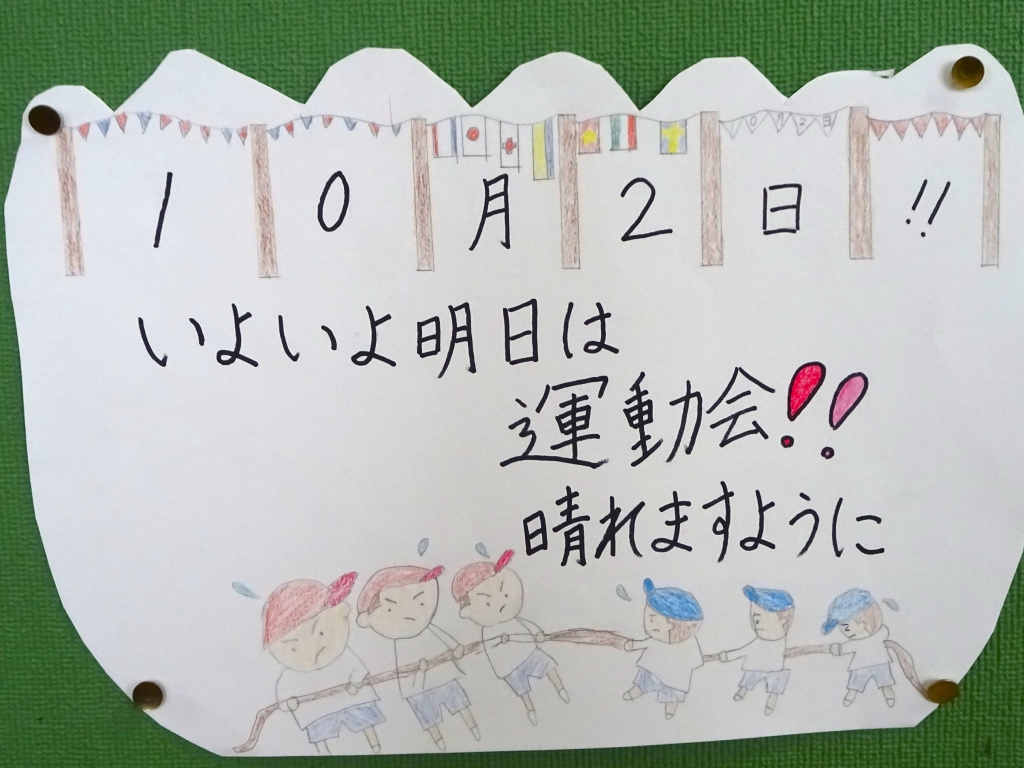 10月2日
10月2日!!
いよいよ明日は
運動会!!
晴れますように